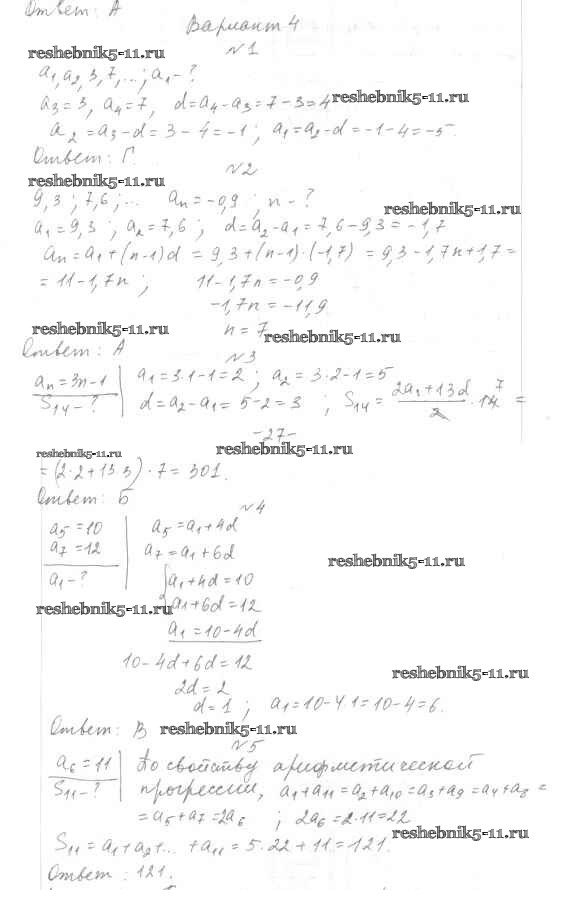 Ответ: А
Вариант 4
reshebnik5-11.ru
№1
a₁, a₂, 3, 7, ...; a₁ - ?
reshebnik5-11.ru
a₃ = 3, a₄ = 7, d = a₄ - a₃ = 7 - 3 = 4
a₂ = a₃ - d = 3 - 4 = -1; a₁ = a₂ - d = -1 - 4 = -5.
Ответ: Г.
№2
reshebnik5-11.ru
9,3; 7,6; ... aₙ = -0,9; n - ?
reshebnik5-11.ru
a₁ = 9,3; a₂ = 7,6; d = a₂ - a₁ = 7,6 - 9,3 = -1,7
aₙ = a₁ + (n-1)d = 9,3 + (n-1)·(-1,7) = 9,3 - 1,7n + 1,7 =
= 11 - 1,7n; 11 - 1,7n = -0,9
-1,7n = -11,9
reshebnik5-11.ru
n = 7
reshebnik5-11.ru
Ответ: А
№3
aₙ = 3n - 1 | a₁ = 3·1 - 1 = 2; a₂ = 3·2 - 1 = 5
S₁₄ - ? | d = a₂ - a₁ = 5 - 2 = 3; S₁₄ = (2a₁ + 13d)/2 · 14 7 =
-27-
reshebnik5-11.ru
reshebnik5-11.ru
= (2·2 + 13·3)·7 = 301.
Ответ: Б
№4
a₅ = 10 | a₅ = a₁ + 4d
a₇ = 12 | a₇ = a₁ + 6d
reshebnik5-11.ru
a₁ - ? | { a₁ + 4d = 10
reshebnik5-11.ru
a₁ + 6d = 12
a₁ = 10 - 4d
10 - 4d + 6d = 12
reshebnik5-11.ru
2d = 2
d = 1; a₁ = 10 - 4·1 = 10 - 4 = 6.
Ответ: В
reshebnik5-11.ru
№5
a₆ = 11 | По свойству арифметической
S₁₁ - ? | прогрессии, a₁ + a₁₁ = a₂ + a₁₀ = a₃ + a₉ = a₄ + a₈ =
= a₅ + a₇ = 2a₆; 2a₆ = 2·11 = 22
reshebnik5-11.ru
S₁₁ = a₁ + a₂ ... + a₁₁ = 5·22 + 11 = 121.
Ответ: 121.